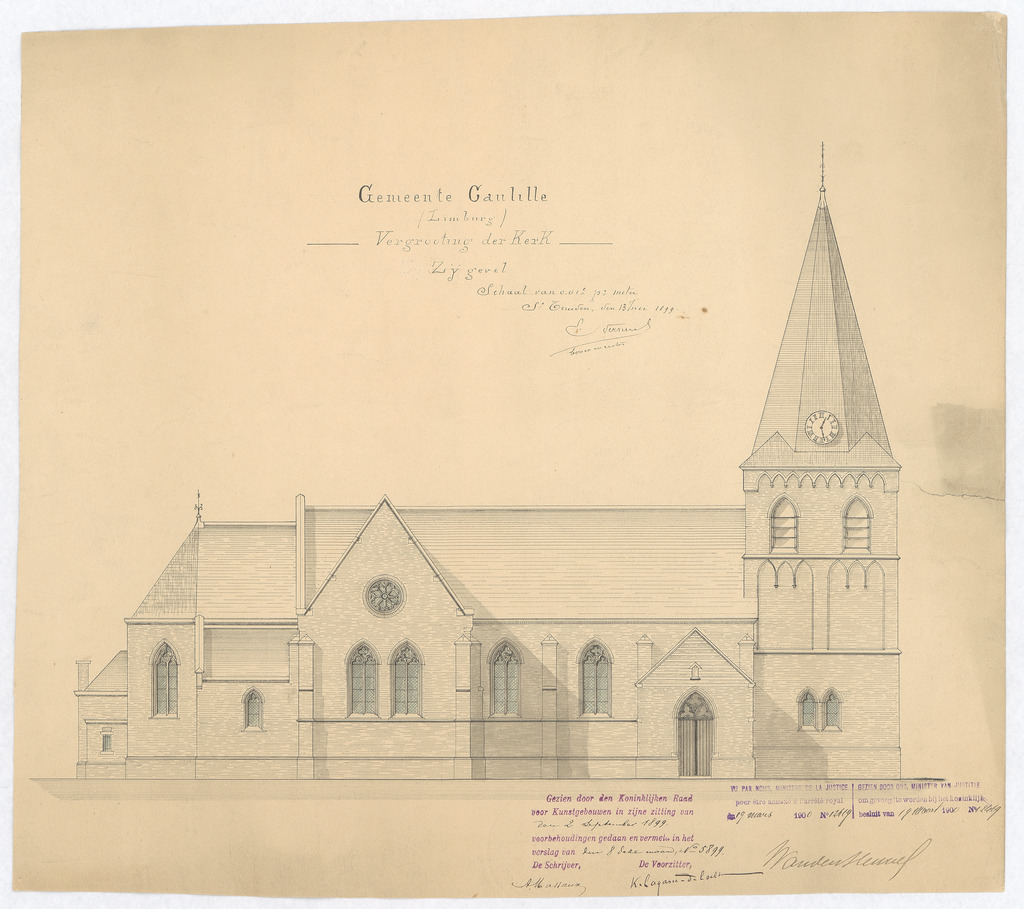 Gemeente Caulille
(Limburg)
Vergrooting der Kerk
Zijgevel
Schaal van 0.01c p^s meter
S^t Truiden, den 13 1899
bouwmeester
Gezien door den Koninklijken Raad
voor Kunstgebouwen in zijne zitting van
den 2 September 1899
voorbehoudingen gedaan en vermeld in het
verslag van den 8 dezer maand, N° 5899.
De Schrijver, De Voorzitter,
A. Massaux K. Lagasse-de Locht
VU PAR NOUS, MINISTRE DE LA JUSTICE
pour être annexé à l'arrêté royal
du 19 mars 1900 N° 12619
GEZIEN DOOR ONS, MINISTER VAN JUSTITIE
om gevoegd te worden bij het koninklijk
besluit van 19 Maart 1900 N° 12619